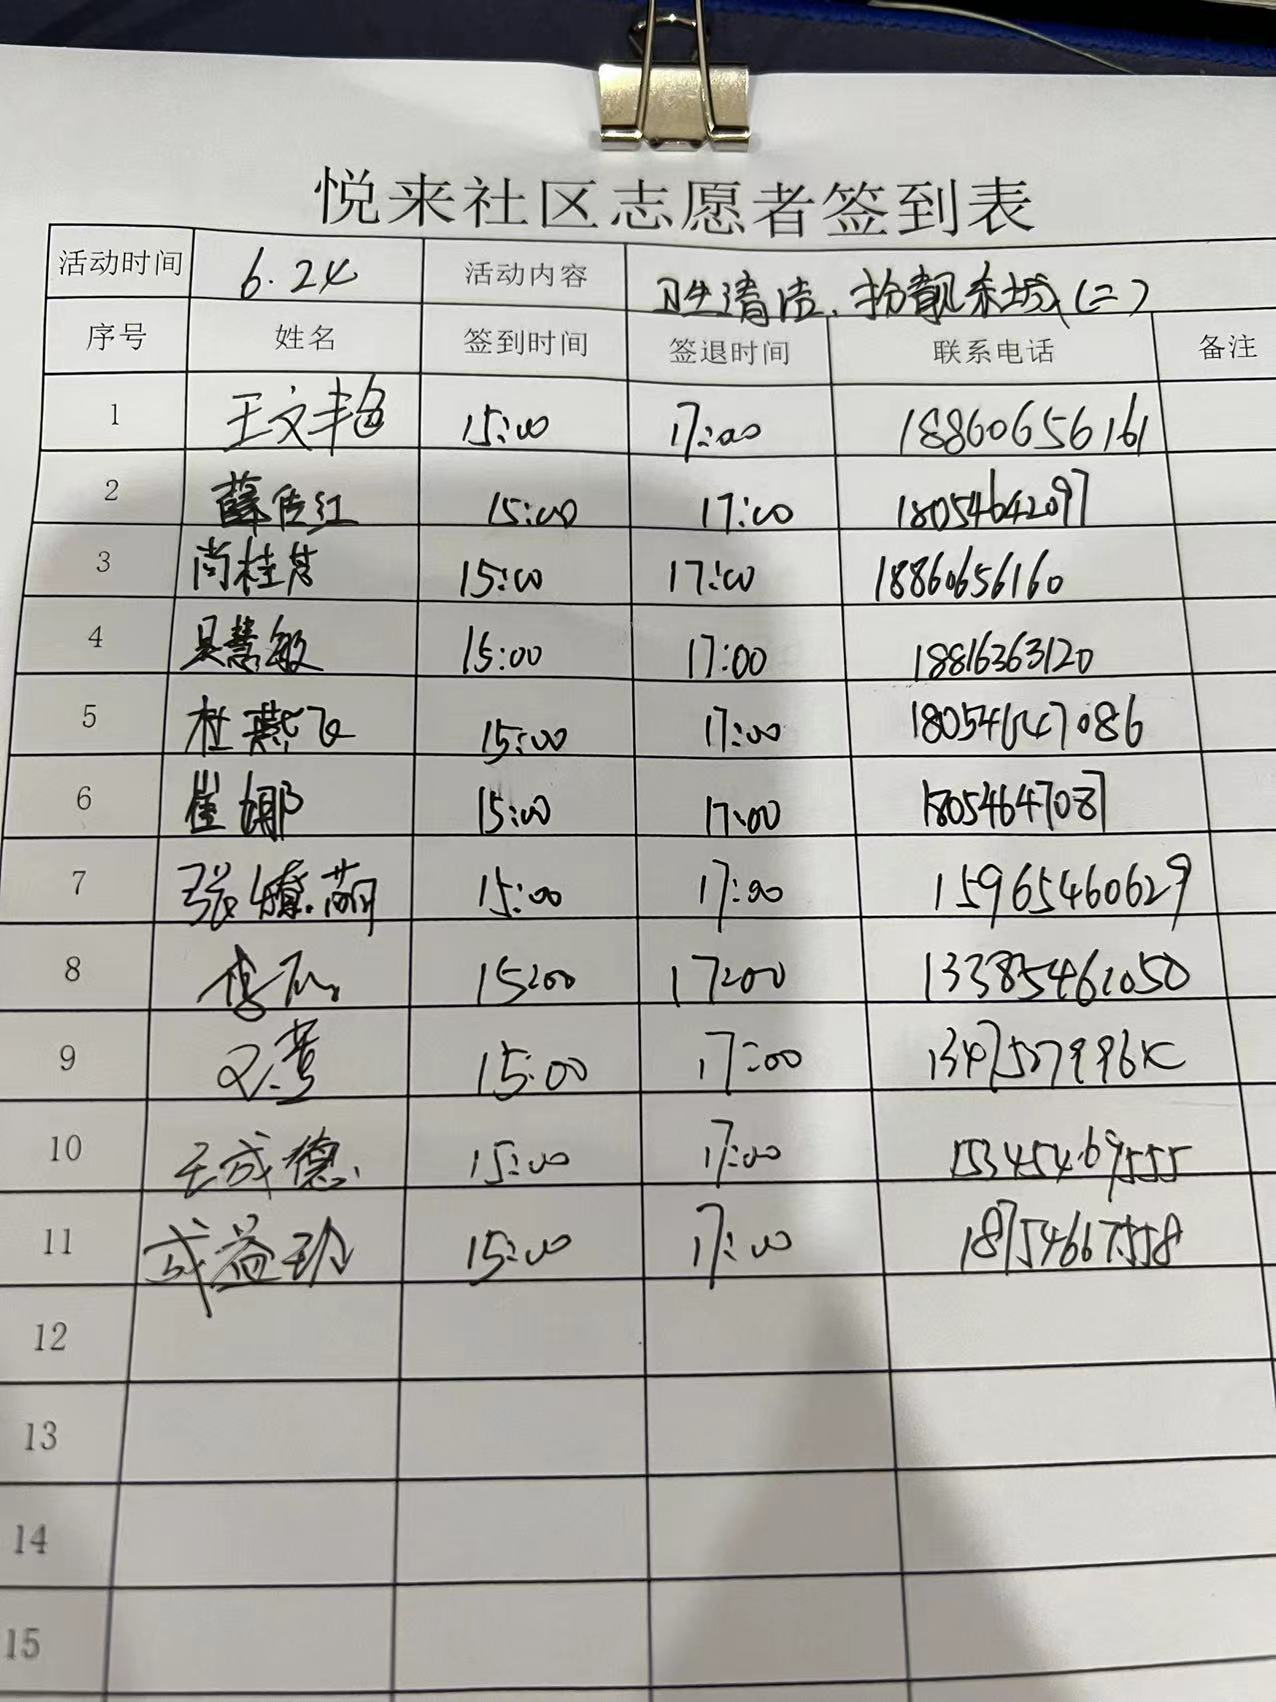 悦来社区志愿者签到表
活动时间 6.24 活动内容 卫生清洁,扮靓东城(二)
序号 姓名 签到时间 签退时间 联系电话 备注
1 王文艳 15:00 17:00 18860656161
2 薛传红 15:00 17:00 18054642097
3 尚桂芳 15:00 17:00 18860656160
4 吴慧敏 15:00 17:00 18816363120
5 杜燕飞 15:00 17:00 18054647086
6 崔娜 15:00 17:00 18054647087
7 张 萌 15:00 17:00 15965460629
8 15:00 17:00 13385461050
9 15:00 17:00
10 王成德 15:00 17:00 15345469555
11 成益 15:00 17:00 18754667558
12
13
14
15